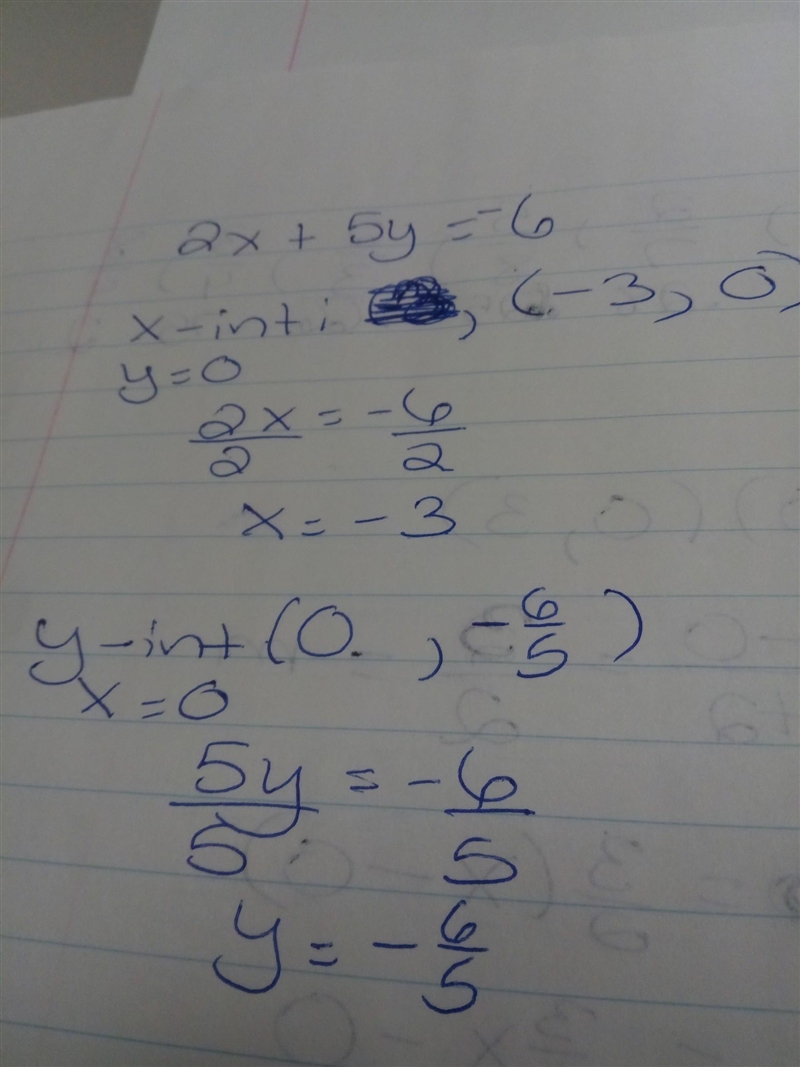 2x + 5y = -6
x-int: , (-3, 0)
y=0
2x/2 = -6/2
x = -3
y-int (0. , -6/5)
x=0
5y/5 = -6/5
y = -6/5